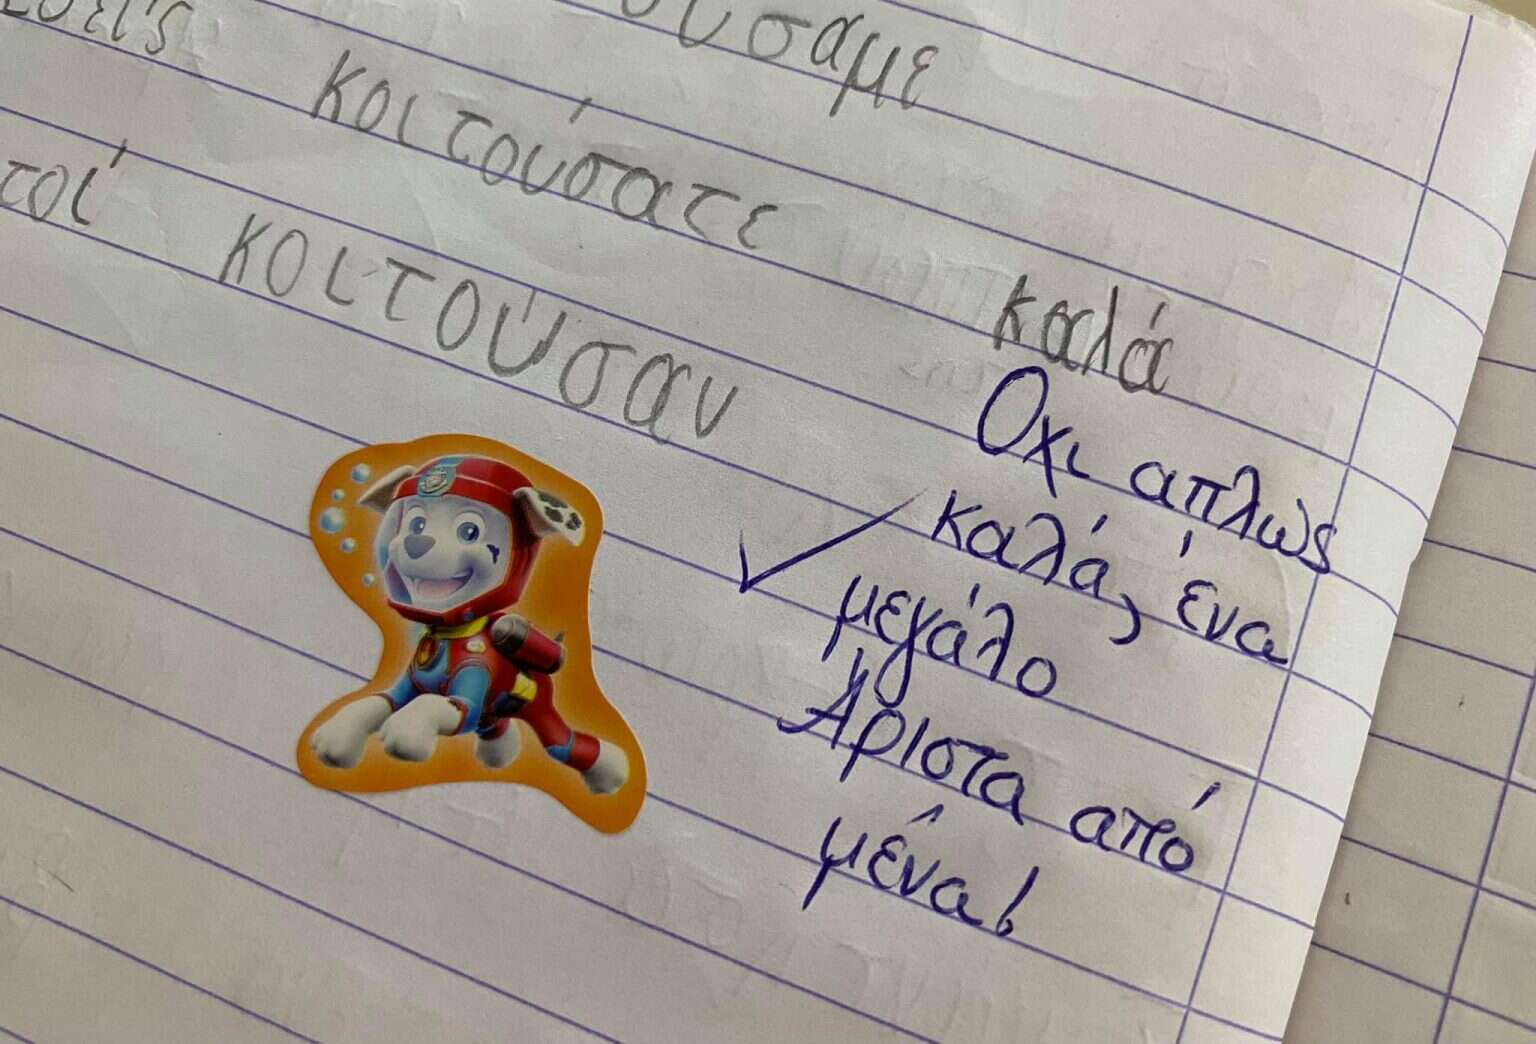 ούσαμε
εσείς κοιτούσατε
τοί κοιτούσαν
καλά
Οχι απλώς
καλά, ένα
μεγάλο
Άριστα από
μένα!